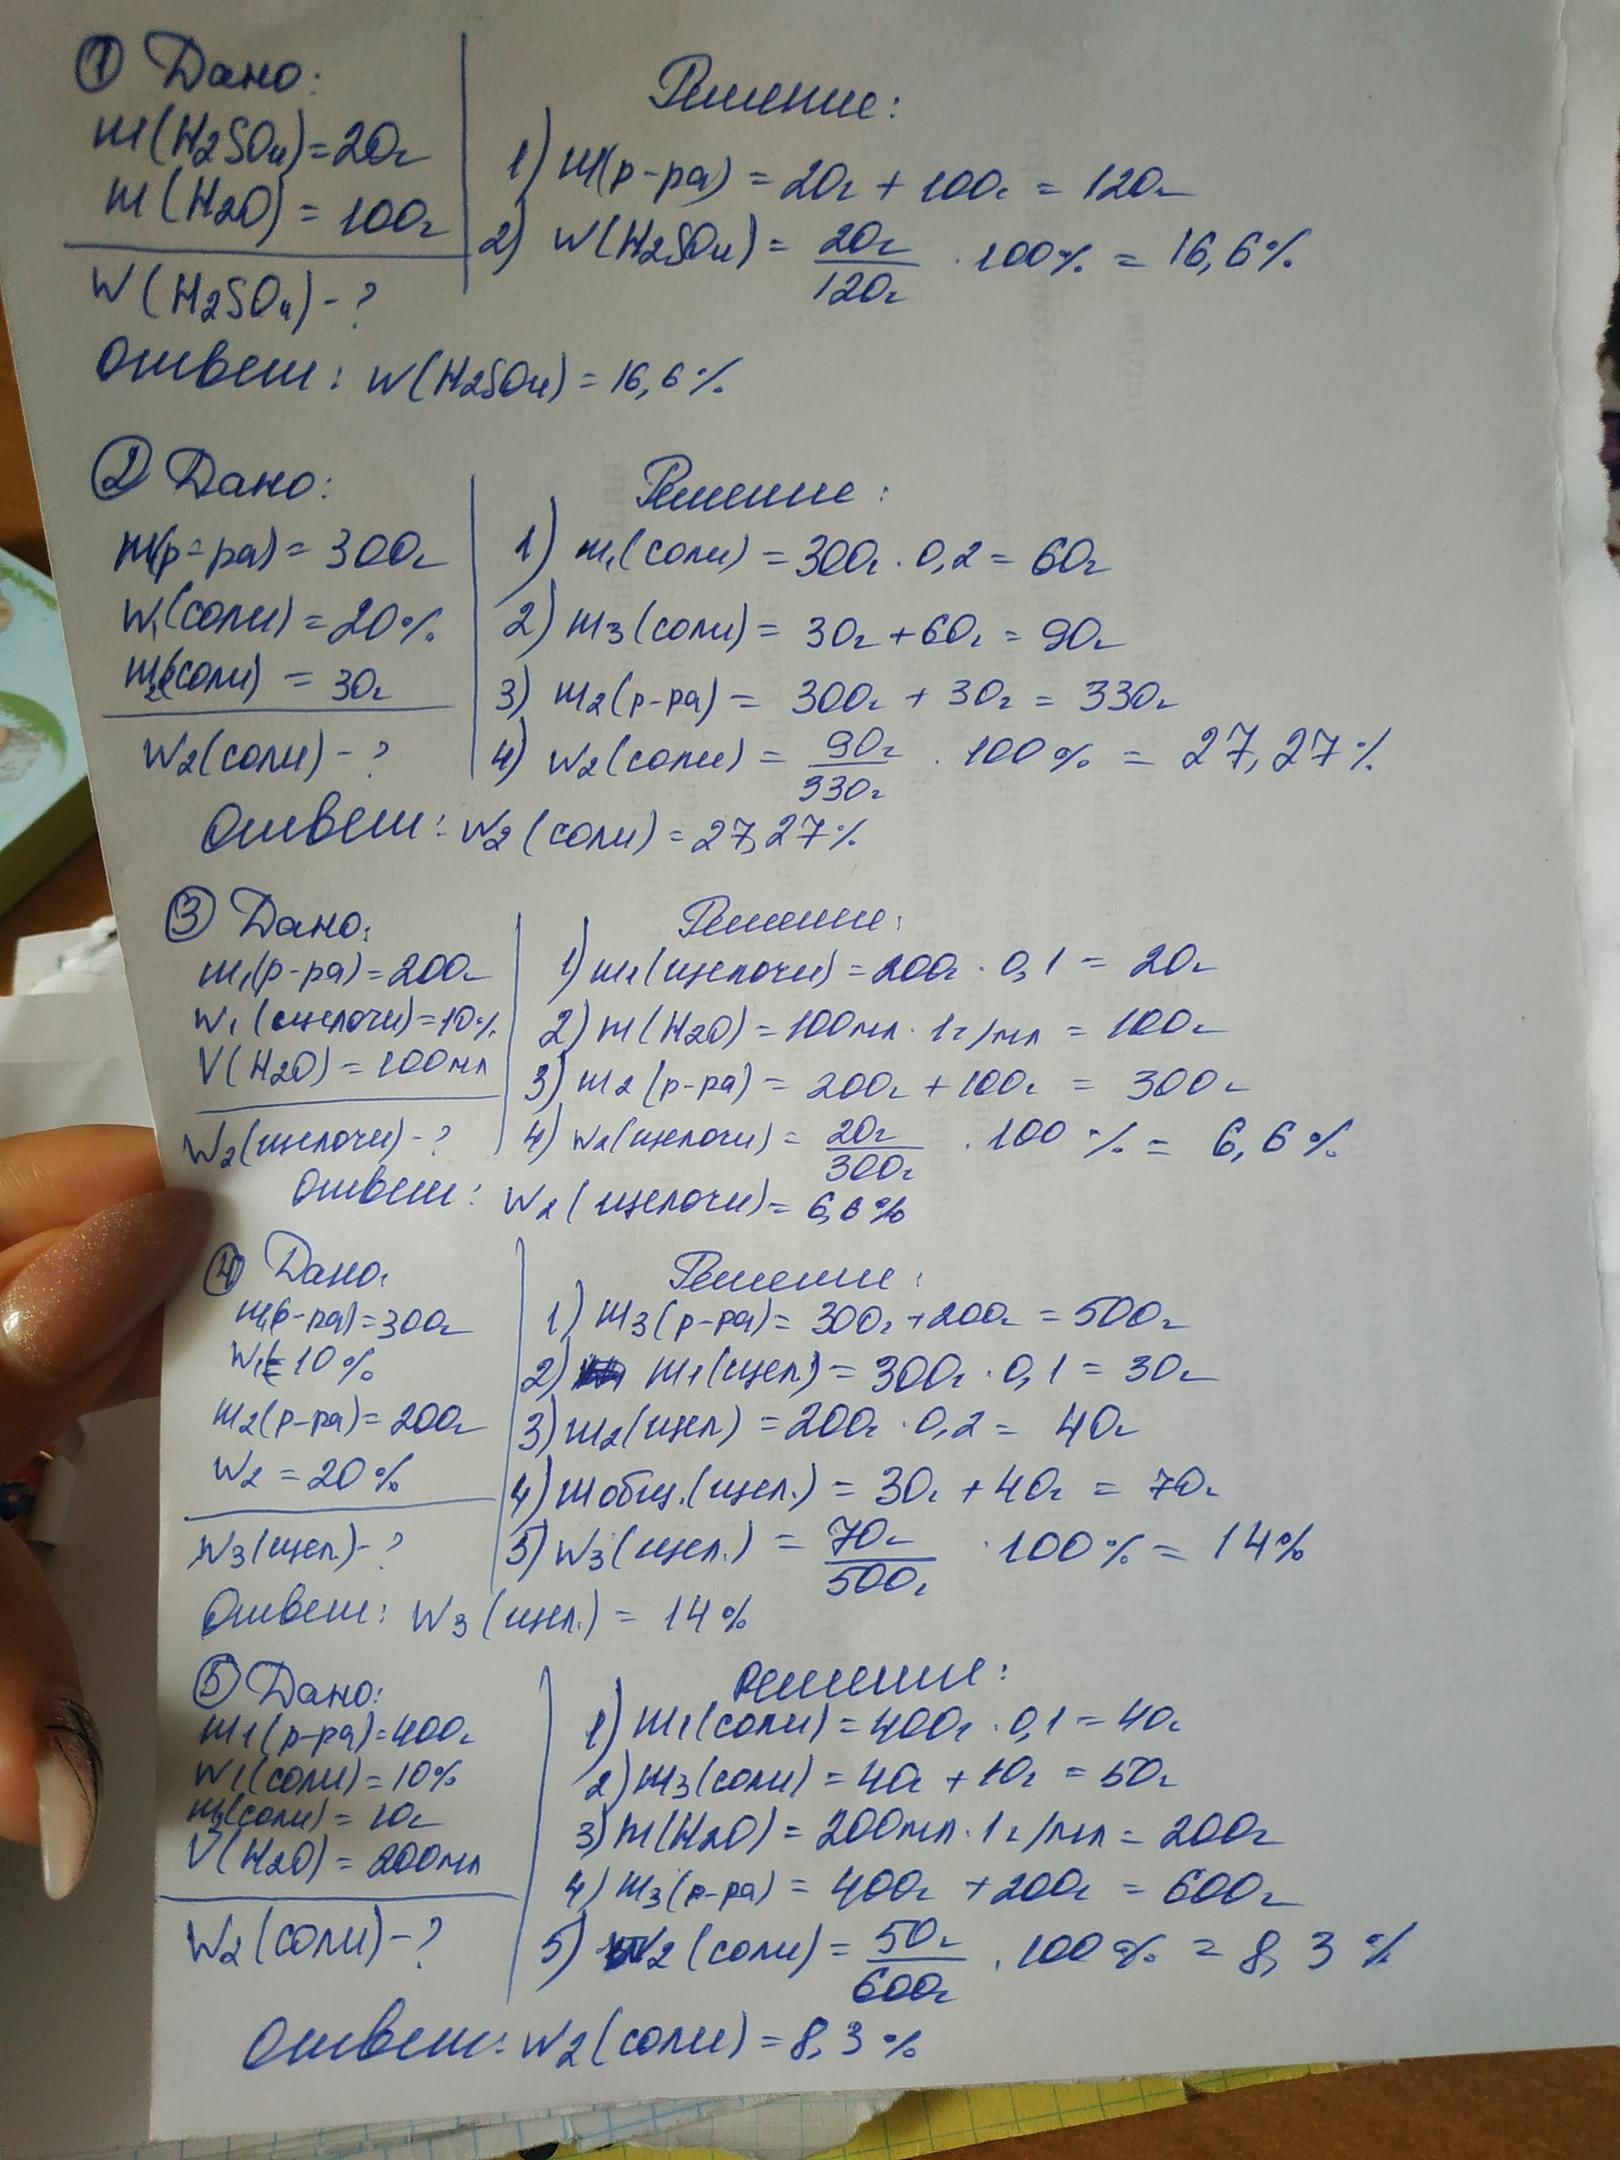 ① Дано:
m(H2SO4)=20г
m(H2O) = 100г
W(H2SO4)-?
Решение:
1) m(р-ра) = 20г + 100г = 120г
2) W(H2SO4) = 20г/120г · 100% = 16,6%
Ответ: W(H2SO4) = 16,6%
② Дано:
m(р-ра) = 300г
W1(соли) = 20%
m2(соли) = 30г
W2(соли) - ?
Решение:
1) m1(соли) = 300г · 0,2 = 60г
2) m3(соли) = 30г + 60г = 90г
3) m2(р-ра) = 300г + 30г = 330г
4) W2(соли) = 90г/330г · 100% = 27,27%
Ответ: W2(соли) = 27,27%
③ Дано:
m1(р-ра) = 200г
W1(щелочи) = 10%
V(H2O) = 100мл
W2(щелочи) - ?
Решение:
1) m1(щелочи) = 200г · 0,1 = 20г
2) m(H2O) = 100мл · 1г/мл = 100г
3) m2(р-ра) = 200г + 100г = 300г
4) W2(щелочи) = 20г/300г · 100% = 6,6%
Ответ: W2(щелочи) = 6,6%
④ Дано:
m1(р-ра) = 300г
W1 = 10%
m2(р-ра) = 200г
W2 = 20%
W3(щел.) - ?
Решение:
1) m3(р-ра) = 300г + 200г = 500г
2) m1(щел.) = 300г · 0,1 = 30г
3) m2(щел) = 200г · 0,2 = 40г
4) mобщ.(щел.) = 30г + 40г = 70г
5) W3(щел.) = 70г/500г · 100% = 14%
Ответ: W3(щел.) = 14%
⑤ Дано:
m1(р-ра) = 400г
W1(соли) = 10%
m2(соли) = 10г
V(H2O) = 200мл
W2(соли) - ?
Решение:
1) m1(соли) = 400г · 0,1 = 40г
2) m3(соли) = 40г + 10г = 50г
3) m(H2O) = 200мл · 1г/мл = 200г
4) m3(р-ра) = 400г + 200г = 600г
5) W2(соли) = 50г/600г · 100% = 8,3%
Ответ: W2(соли) = 8,3%